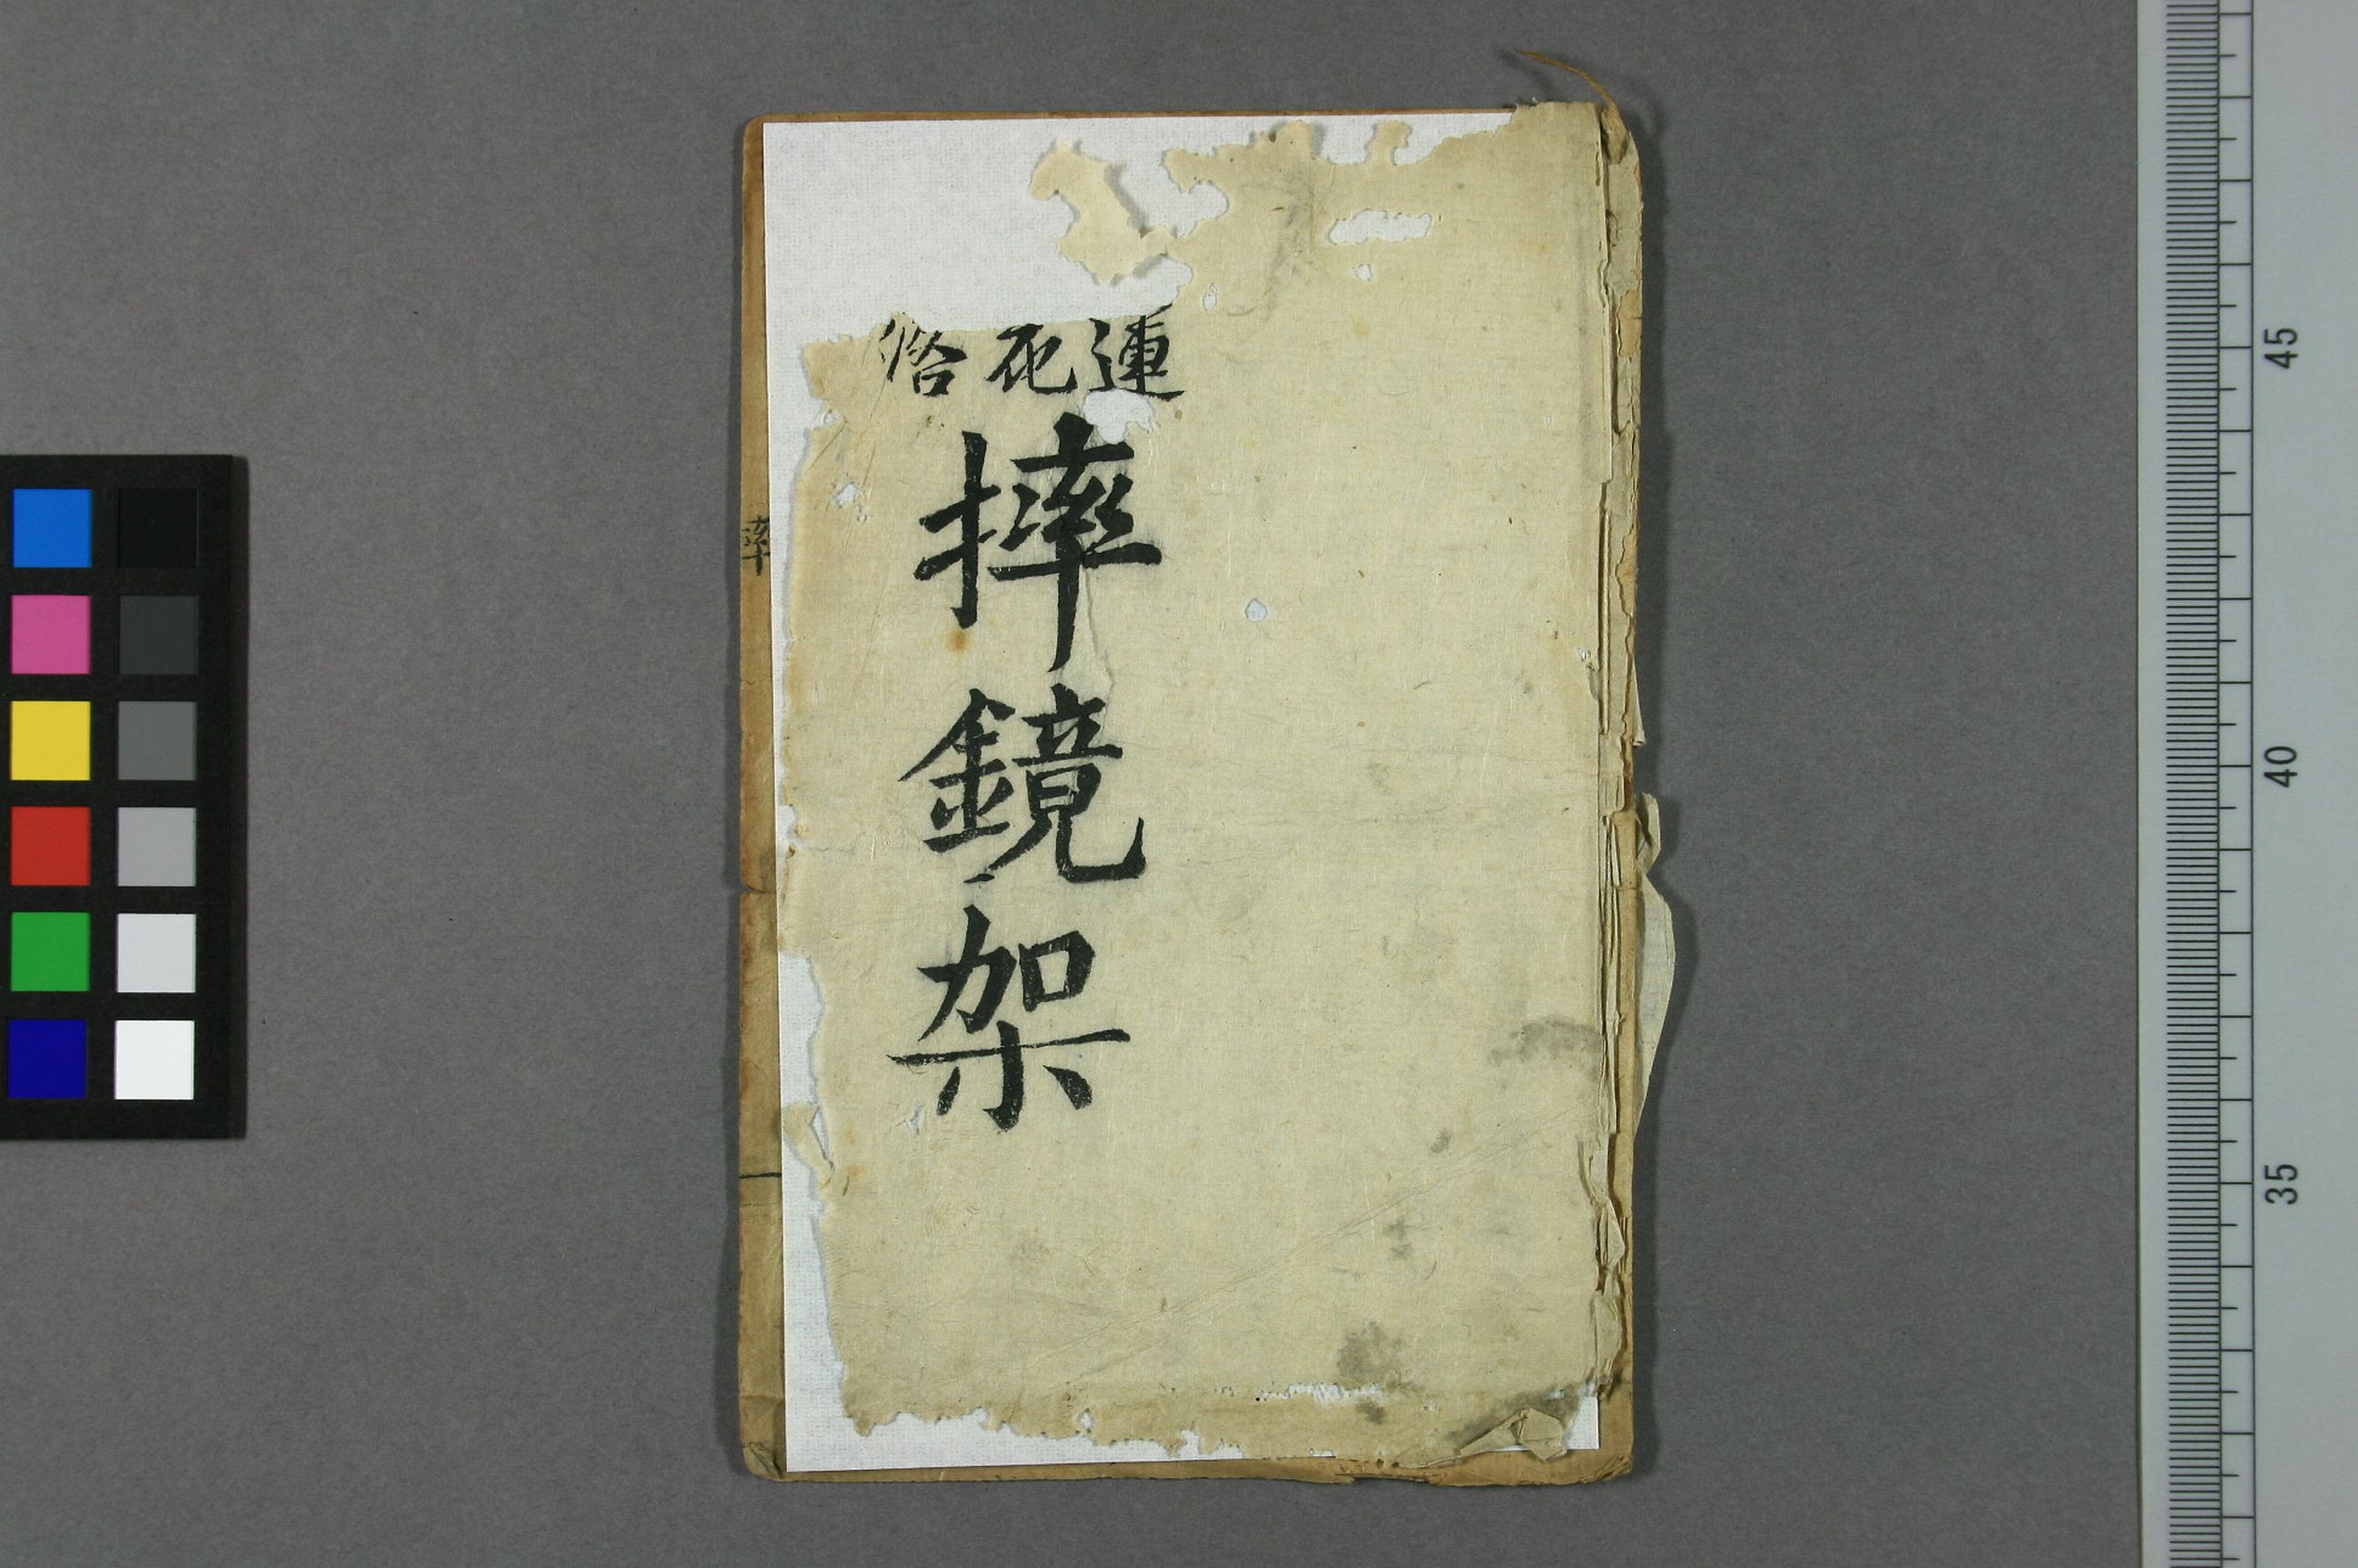 蓮花落
摔鏡架
45
40
35